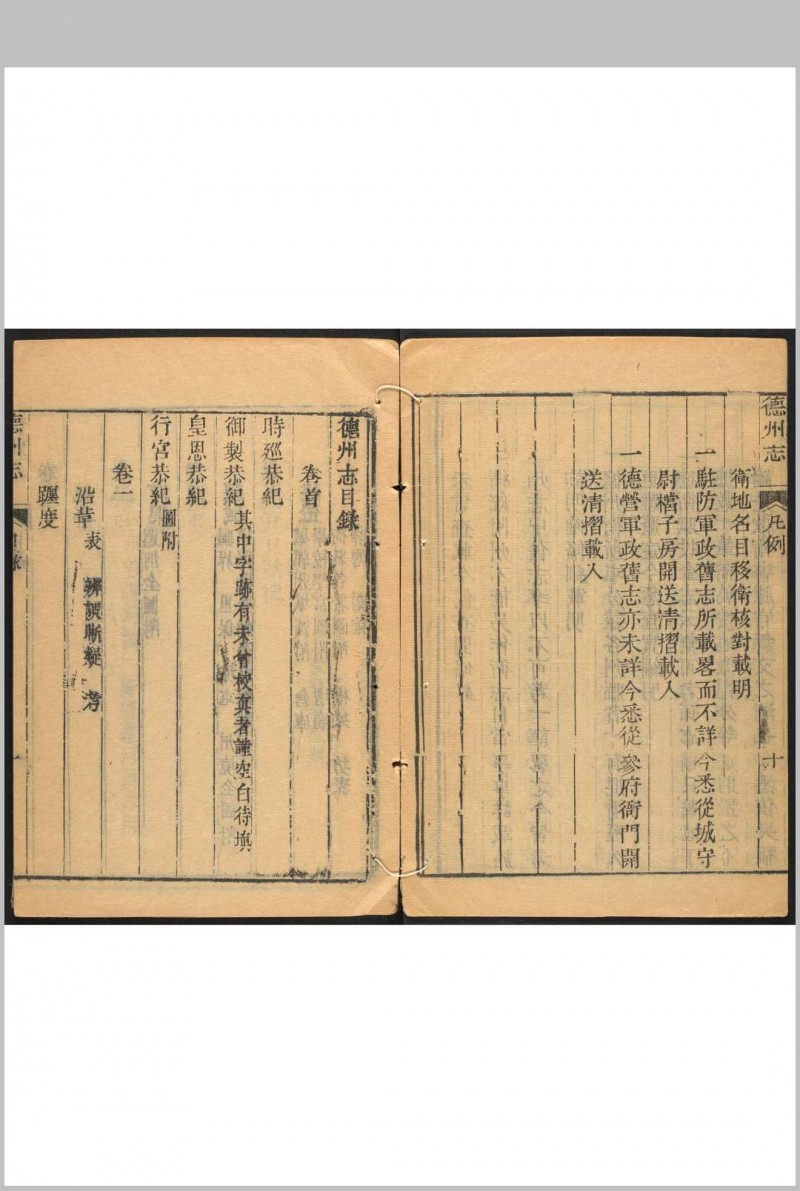 德州志
凡例
十
衛地名目移衛核對載明
一駐防軍政舊志所載畧而不詳今悉從城守
尉檔子房開送清摺載入
一德營軍政舊志亦未詳今悉從叅府衙門開
送清摺載入
德州志目錄
卷首
時廵恭紀
御製恭紀其中字跡有未曾校真者謹空白待填
皇恩恭紀
行宮恭紀圖附
卷一
沿革表 辨誤斷疑 考
躔度
德州志
目錄
一